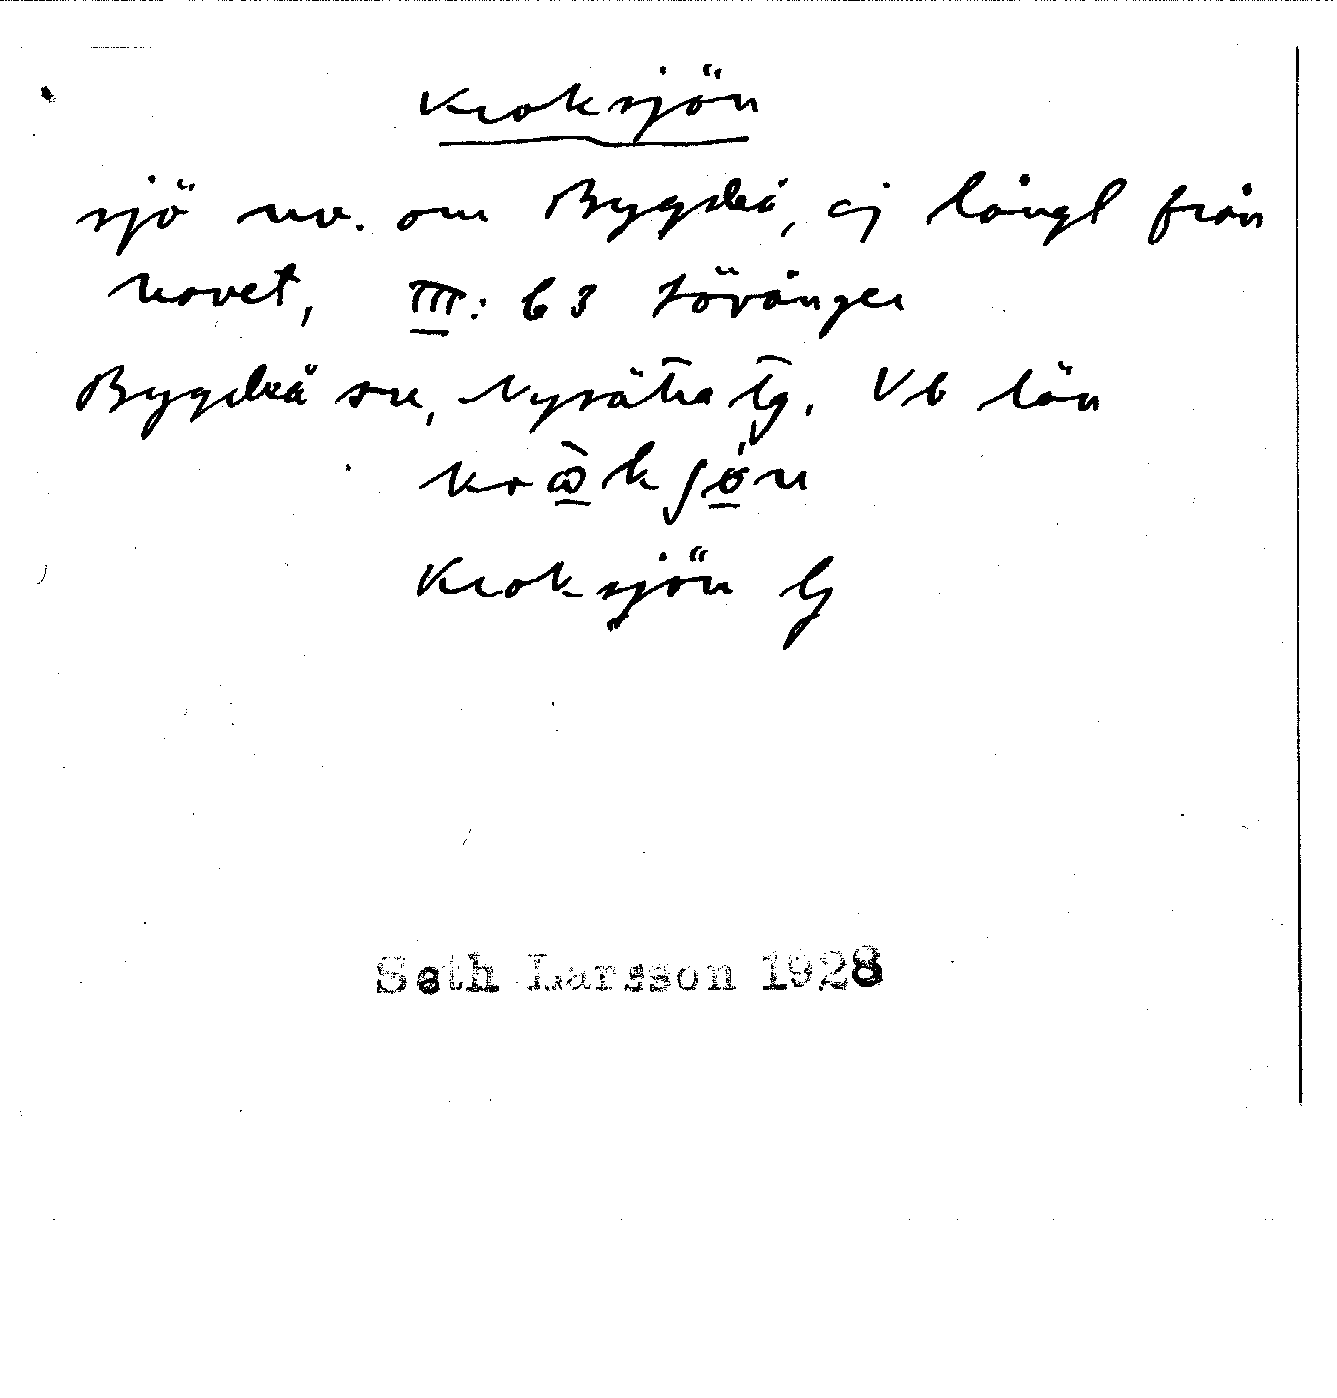 Kroksjön
sjö nv. om Bygdeå, ej långt från
havet, III: 63 Lövånger
Bygdeå sn, Nysätra tg. Vb län
Kroksjön G
Seth Larsson 1928